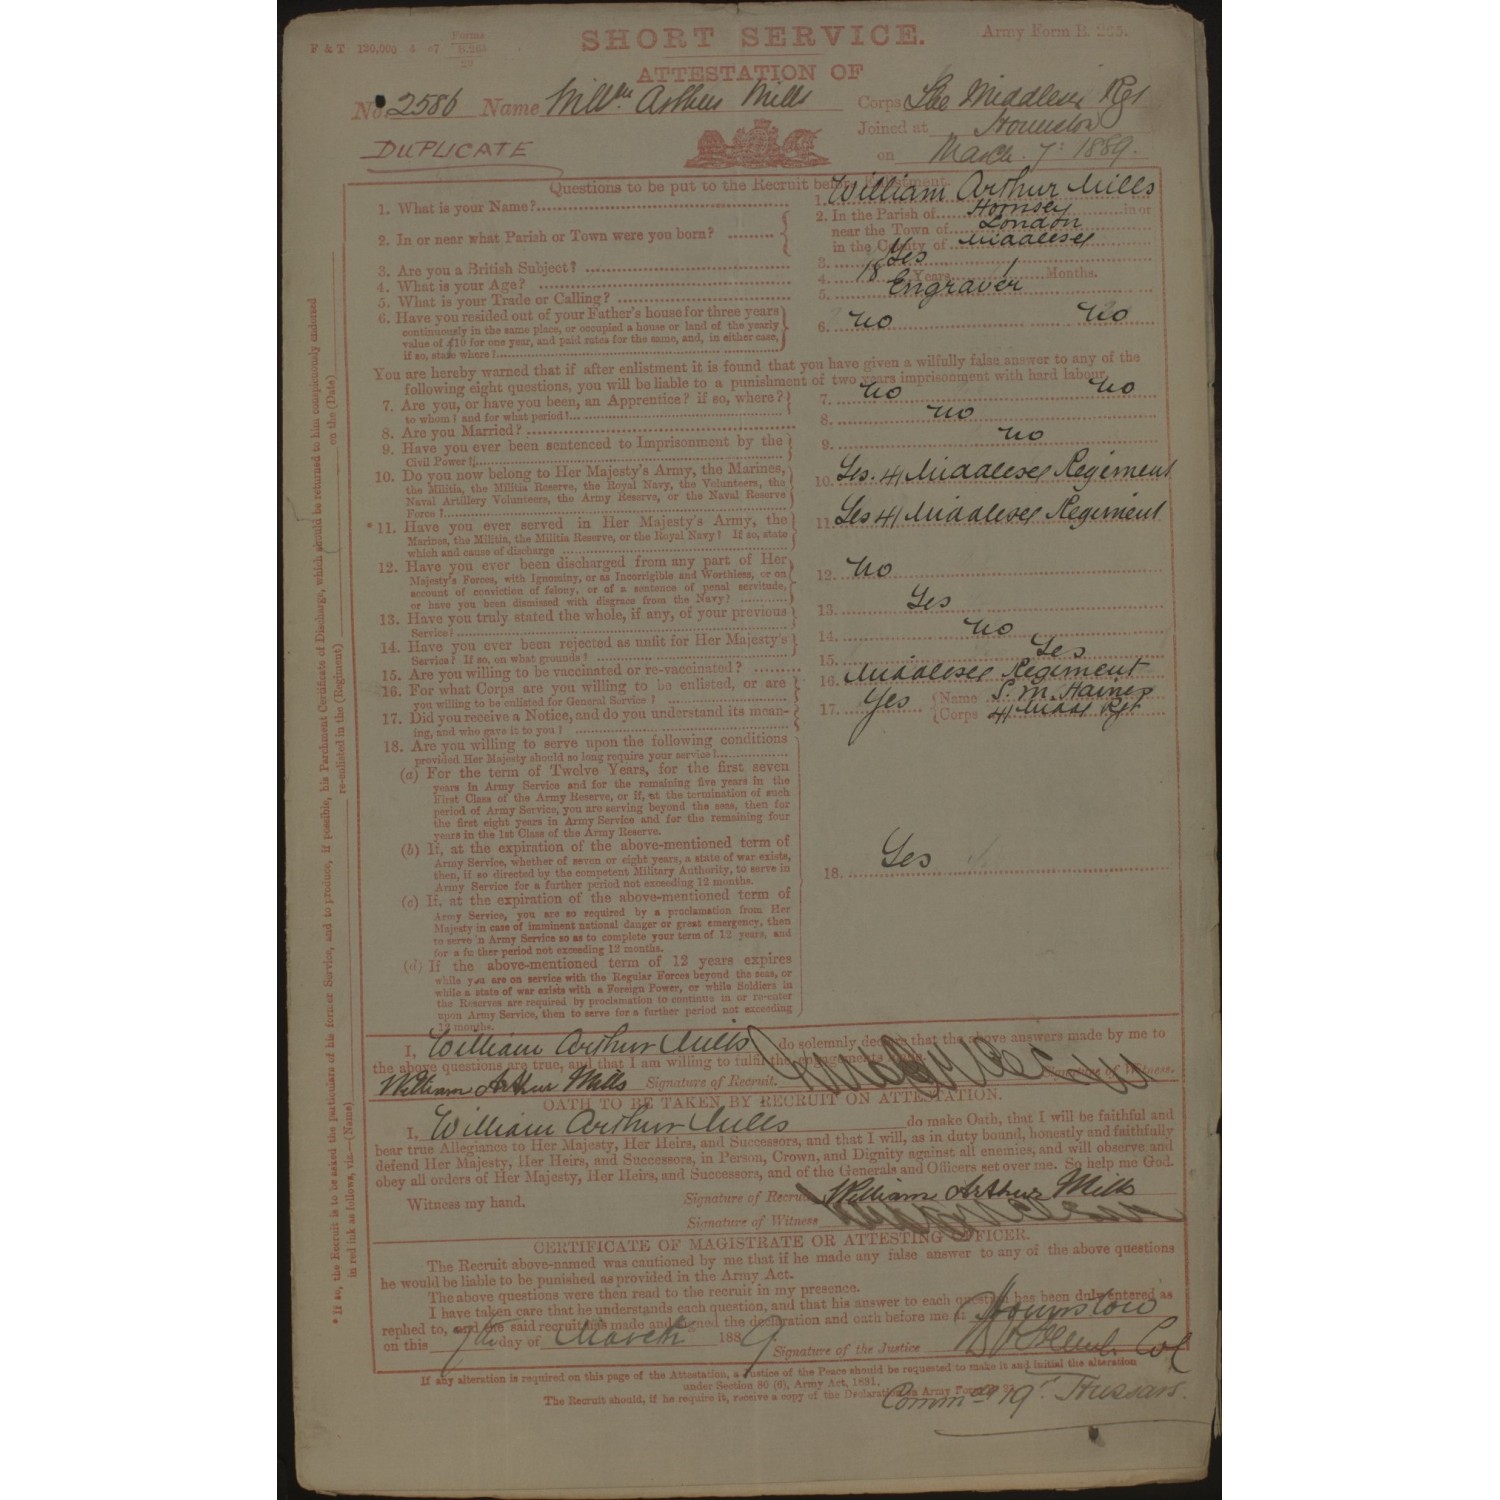 F & T 120,000 4—87 Forms B.265 29
SHORT SERVICE.
Army Form B. 265.
ATTESTATION OF
No. 2586 Name Willm Arthur Mills Corps The Middlesex Rgt
Joined at Hounslow
DUPLICATE
on March 7: 1889.
Questions to be put to the Recruit before Enlistment.
1. What is your Name? 1. William Arthur Mills
2. In or near what Parish or Town were you born? 2. In the Parish of Hornsey in or
near the Town of London
in the County of Middlesex
3. Are you a British Subject? 3. Yes
4. What is your Age? 4. 18 Years 1 Months.
5. What is your Trade or Calling? 5. Engraver
6. Have you resided out of your Father's house for three years
continuously in the same place, or occupied a house or land of the yearly
value of £10 for one year, and paid rates for the same, and, in either case,
if so, state where? 6. No No
You are hereby warned that if after enlistment it is found that you have given a wilfully false answer to any of the
following eight questions, you will be liable to a punishment of two years imprisonment with hard labour.
7. Are you, or have you been, an Apprentice? if so, where?
to whom? and for what period? 7. No No
8. Are you Married? 8. No
9. Have you ever been sentenced to Imprisonment by the
Civil Power? 9. No
10. Do you now belong to Her Majesty's Army, the Marines,
the Militia, the Militia Reserve, the Royal Navy, the Volunteers, the
Naval Artillery Volunteers, the Army Reserve, or the Naval Reserve
Force? 10. Yes. 4/ Middlesex Regiment
*11. Have you ever served in Her Majesty's Army, the
Marines, the Militia, the Militia Reserve, or the Royal Navy? If so, state
which and cause of discharge 11. Yes 4/ Middlesex Regiment
12. Have you ever been discharged from any part of Her
Majesty's Forces, with Ignominy, or as Incorrigible and Worthless, or on
account of conviction of felony, or of a sentence of penal servitude,
or have you been dismissed with disgrace from the Navy? 12. No
13. Have you truly stated the whole, if any, of your previous
Service? 13. Yes
14. Have you ever been rejected as unfit for Her Majesty's
Service? If so, on what grounds? 14. No
15. Are you willing to be vaccinated or re-vaccinated? 15. Yes
16. For what Corps are you willing to be enlisted, or are
you willing to be enlisted for General Service? 16. Middlesex Regiment
17. Did you receive a Notice, and do you understand its mean-
ing, and who gave it to you? 17. Yes Name S. M. Haines
Corps 4/ Middx Rgt
18. Are you willing to serve upon the following conditions
provided Her Majesty should so long require your service?
(a) For the term of Twelve Years, for the first seven
years in Army Service and for the remaining five years in the
First Class of the Army Reserve, or if, at the termination of such
period of Army Service, you are serving beyond the seas, then for
the first eight years in Army Service and for the remaining four
years in the 1st Class of the Army Reserve.
(b) If, at the expiration of the above-mentioned term of
Army Service, whether of seven or eight years, a state of war exists,
then, if so directed by the competent Military Authority, to serve in
Army Service for a further period not exceeding 12 months.
18. Yes
(c) If, at the expiration of the above-mentioned term of
Army Service, you are so required by a proclamation from Her
Majesty in case of imminent national danger or great emergency, then
to serve in Army Service so as to complete your term of 12 years, and
for a further period not exceeding 12 months.
(d) If the above-mentioned term of 12 years expires
while you are on service with the Regular Forces beyond the seas, or
while a state of war exists with a Foreign Power, or while Soldiers in
the Reserves are required by proclamation to continue in or re-enter
upon Army Service, then to serve for a further period not exceeding
12 months.
I, William Arthur Mills do solemnly declare that the above answers made by me to
the above questions are true, and that I am willing to fulfil the engagements made.
William Arthur Mills Signature of Recruit. Signature of Witness.
OATH TO BE TAKEN BY RECRUIT ON ATTESTATION.
I, William Arthur Mills do make Oath, that I will be faithful and
bear true Allegiance to Her Majesty, Her Heirs, and Successors, and that I will, as in duty bound, honestly and faithfully
defend Her Majesty, Her Heirs, and Successors, in Person, Crown, and Dignity against all enemies, and will observe and
obey all orders of Her Majesty, Her Heirs, and Successors, and of the Generals and Officers set over me. So help me God.
Witness my hand. Signature of Recruit William Arthur Mills
Signature of Witness
CERTIFICATE OF MAGISTRATE OR ATTESTING OFFICER.
The Recruit above-named was cautioned by me that if he made any false answer to any of the above questions
he would be liable to be punished as provided in the Army Act.
The above questions were then read to the recruit in my presence.
I have taken care that he understands each question, and that his answer to each question has been duly entered as
replied to, and the said recruit has made and signed the declaration and oath before me at Hounslow
on this 7th day of March 1889
Signature of the Justice Col
If any alteration is required on this page of the Attestation, a Justice of the Peace should be requested to make it and initial the alteration
under Section 80 (6), Army Act, 1881.
The Recruit should, if he require it, receive a copy of the Declaration on Army Form
Hussars.
* If so, the Recruit is to be asked the particulars of his former Service, and to produce, if possible, his Parchment Certificate of Discharge, which should be returned to him conspicuously endorsed
in red ink as follows, viz.—(Name) re-enlisted in the (Regiment) on the (Date)